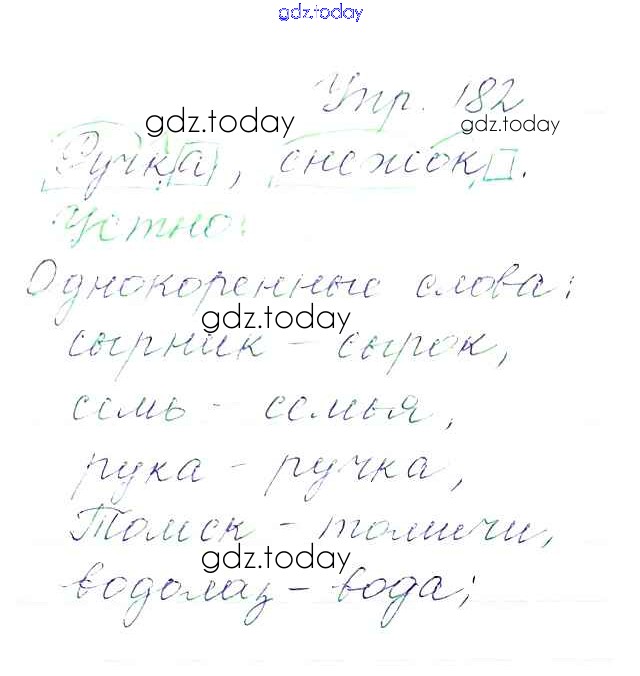 gdz.today
Упр. 182
gdz.today
gdz.today
Ручка, снежок.
Устно:
Однокоренные слова:
gdz.today
сырник - сырок,
семь - семья,
рука - ручка,
Томск - томичи,
gdz.today
водолаз - вода;